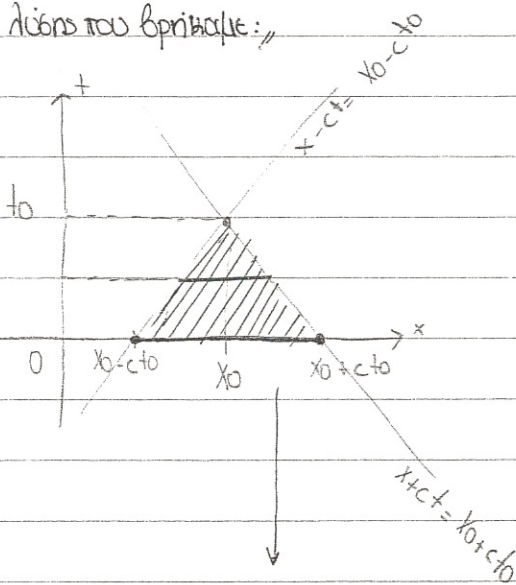 λύσης που βρήκαμε:
t
x-ct = x0-ct0
t0
x
0
x0-ct0
x0
x0+ct0
x+ct = x0+ct0